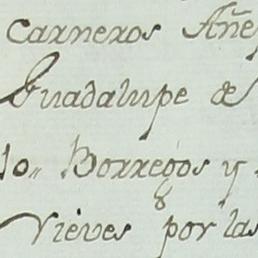 carneros Añe
Guadalupe de
lo,, Borregos y
Nieves por las